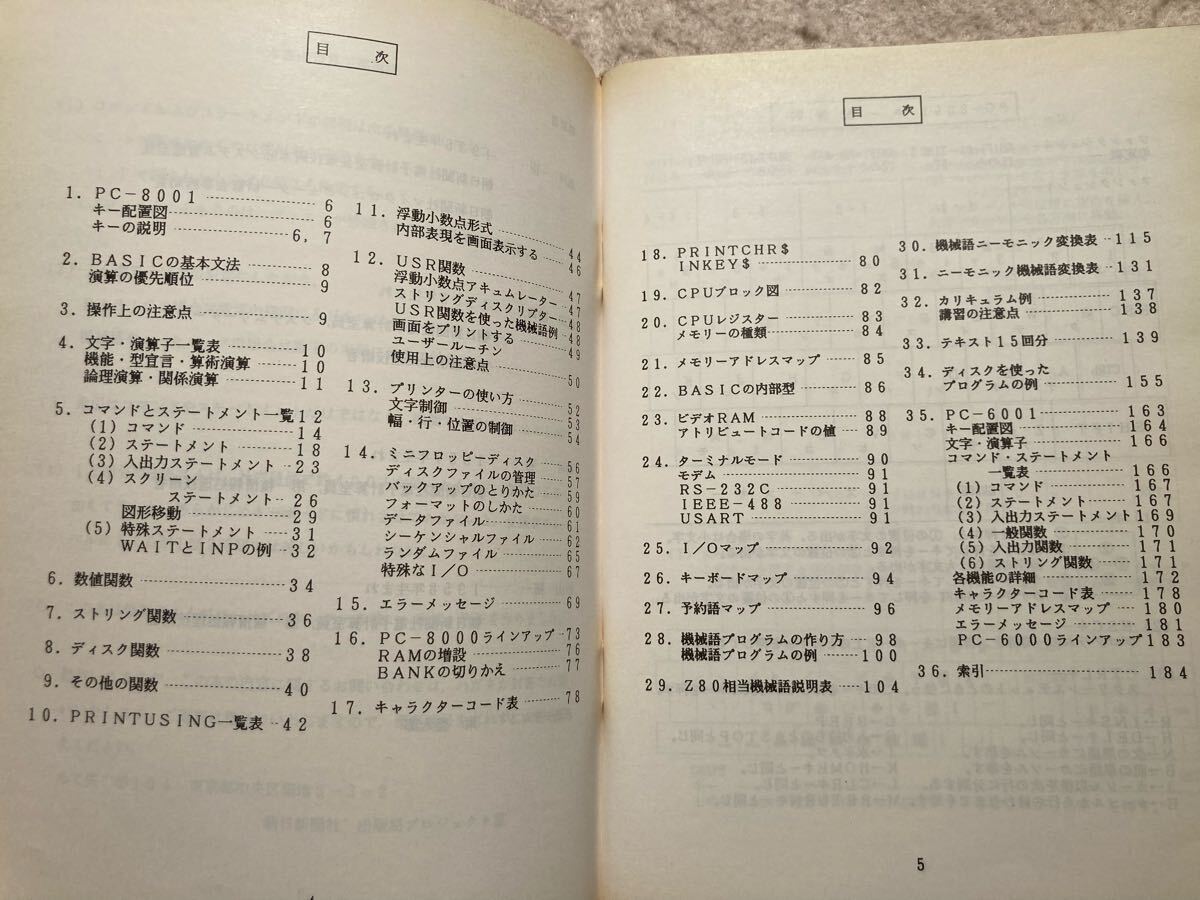 目 次
1．PC－8001 6
キー配置図 6
キーの説明 6，7
2．BASICの基本文法 8
演算の優先順位 9
3．操作上の注意点 9
4．文字・演算子一覧表 10
機能・型宣言・算術演算 10
論理演算・関係演算 11
5．コマンドとステートメント一覧 12
（1）コマンド 14
（2）ステートメント 18
（3）入出力ステートメント 23
（4）スクリーン
ステートメント 26
図形移動 29
（5）特殊ステートメント 31
WAITとINPの例 32
6．数値関数 34
7．ストリング関数 36
8．ディスク関数 38
9．その他の関数 40
10．PRINTUSING一覧表 42
11．浮動小数点形式 44
内部表現を画面表示する 46
12．USR関数
浮動小数点アキュムレーター 47
ストリングディスクリプター 47
USR関数を使った機械語例 48
画面をプリントする 48
ユーザールーチン 49
使用上の注意点 50
13．プリンターの使い方 52
文字制御 53
幅・行・位置の制御 54
14．ミニフロッピーディスク 56
ディスクファイルの管理 57
バックアップのとりかた 59
フォーマットのしかた 60
データファイル 61
シーケンシャルファイル 62
ランダムファイル 65
特殊なI／O 67
15．エラーメッセージ 69
16．PC－8000ラインアップ 73
RAMの増設 76
BANKの切りかえ 77
17．キャラクターコード表 78
目 次
18．PRINTCHR$
INKEY$ 80
19．CPUブロック図 82
20．CPUレジスター 83
メモリーの種類 84
21．メモリーアドレスマップ 85
22．BASICの内部型 86
23．ビデオRAM 88
アトリビュートコードの値 89
24．ターミナルモード 90
モデム 91
RS－232C 91
IEEE－488 91
USART 91
25．I／Oマップ 92
26．キーボードマップ 94
27．予約語マップ 96
28．機械語プログラムの作り方 98
機械語プログラムの例 100
29．Z80相当機械語説明表 104
30．機械語ニーモニック変換表 115
31．ニーモニック機械語変換表 131
32．カリキュラム例 137
講習の注意点 138
33．テキスト15回分 139
34．ディスクを使った
プログラムの例 155
35．PC－6001 163
キー配置図 164
文字・演算子 166
コマンド・ステートメント
一覧表 166
（1）コマンド 167
（2）ステートメント 167
（3）入出力ステートメント 169
（4）一般関数 170
（5）入出力関数 171
（6）ストリング関数 171
各機能の詳細 172
キャラクターコード表 178
メモリーアドレスマップ 180
エラーメッセージ 181
PC－6000ラインアップ 183
36．索引 184
5